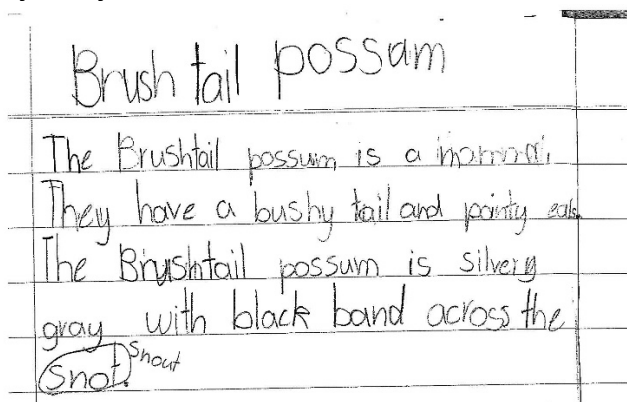 Brush tail possum
The Brushtail possum is a mammal.
They have a bushy tail and pointy ears.
The Brushtail possum is silvery
gray with black band across the
Snot. Snout